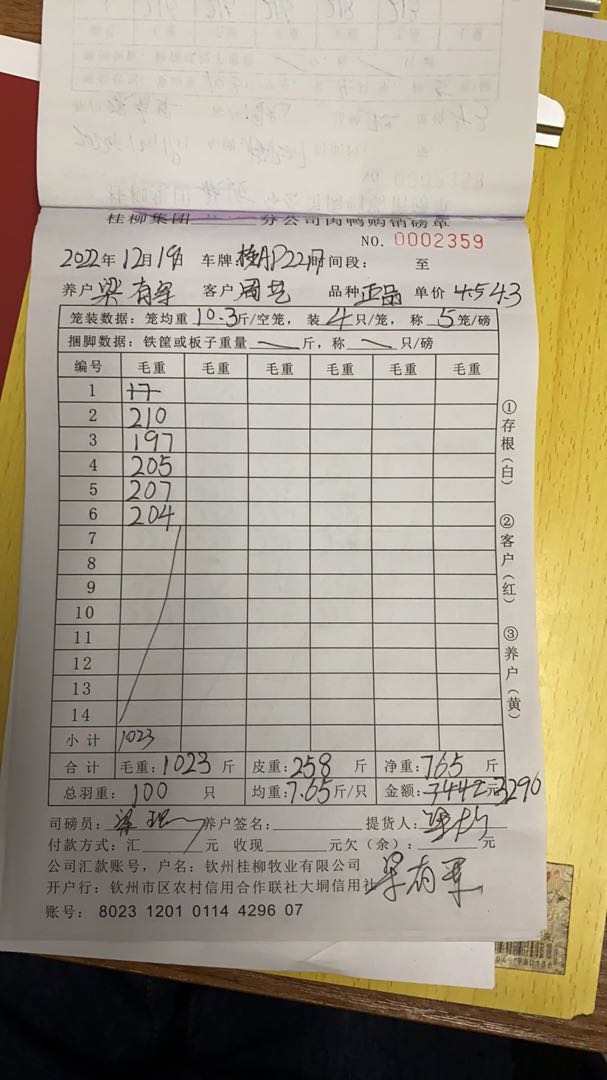 桂柳集团 分公司肉鸭购销磅单
NO. 0002359
2022年12月19日 车牌:桂AP22 时间段: 至
养户 梁有军 客户 周艺 品种 正品 单价 4543
笼装数据: 笼均重 10.3 斤/空笼, 装 4 只/笼, 称 5 笼/磅
捆脚数据: 铁筐或板子重量 斤, 称 只/磅
编号 毛重 毛重 毛重 毛重 毛重 毛重
1
2 210
3 197
4 205
5 207
6 204
7
8
9
10
11
12
13
14
小计 1023
合计 毛重: 1023 斤 皮重: 258 斤 净重: 765 斤
总羽重: 100 只 均重: 7.65 斤/只 金额: 元 3290
司磅员: 梁 养户签名: 提货人:
付款方式: 汇 元 收现 元欠(余): 元
公司汇款账号, 户名: 钦州桂柳牧业有限公司
开户行: 钦州市区农村信用合作联社大垌信用社 梁有军
账号: 8023 1201 0114 4296 07
①存根(白)
②客户(红)
③养户(黄)